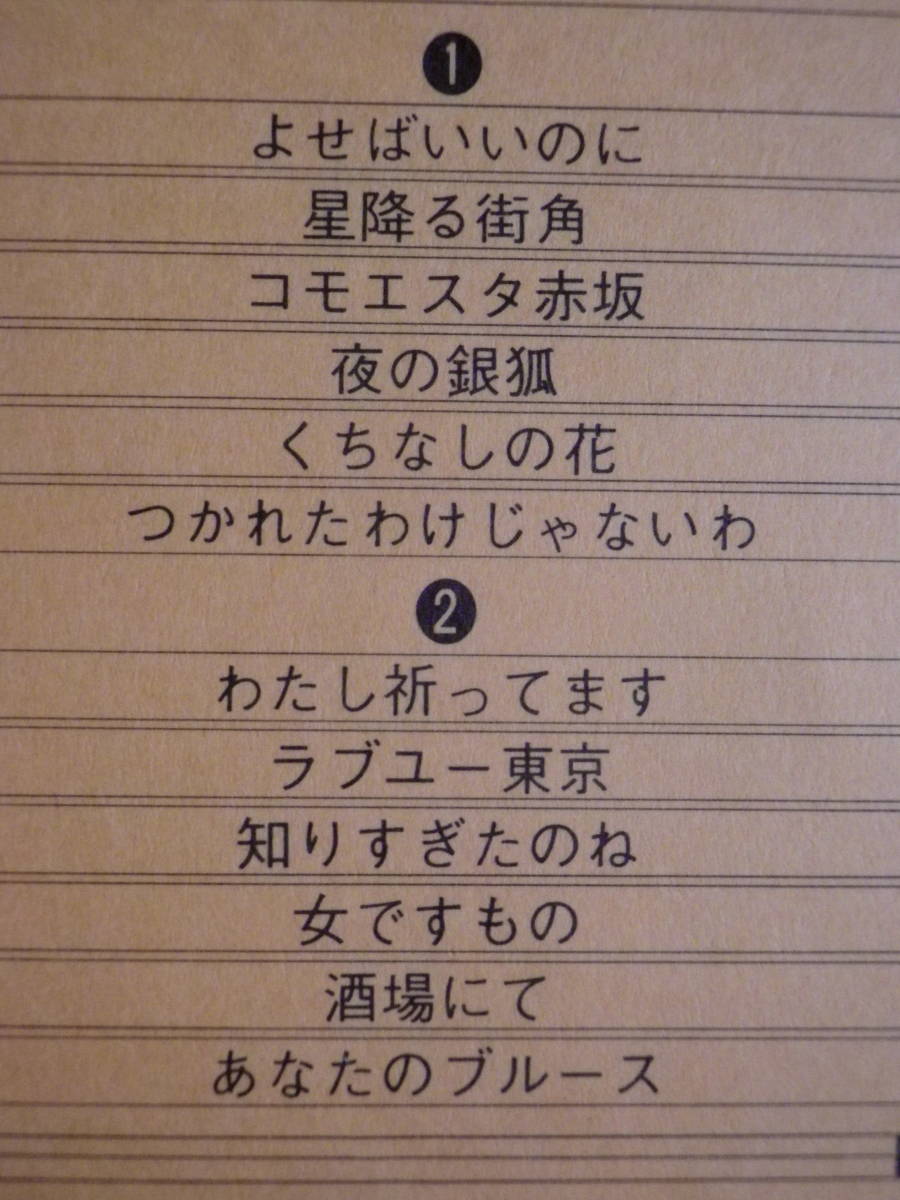 ❶
よせばいいのに
星降る街角
コモエスタ赤坂
夜の銀狐
くちなしの花
つかれたわけじゃないわ
❷
わたし祈ってます
ラブユー東京
知りすぎたのね
女ですもの
酒場にて
あなたのブルース